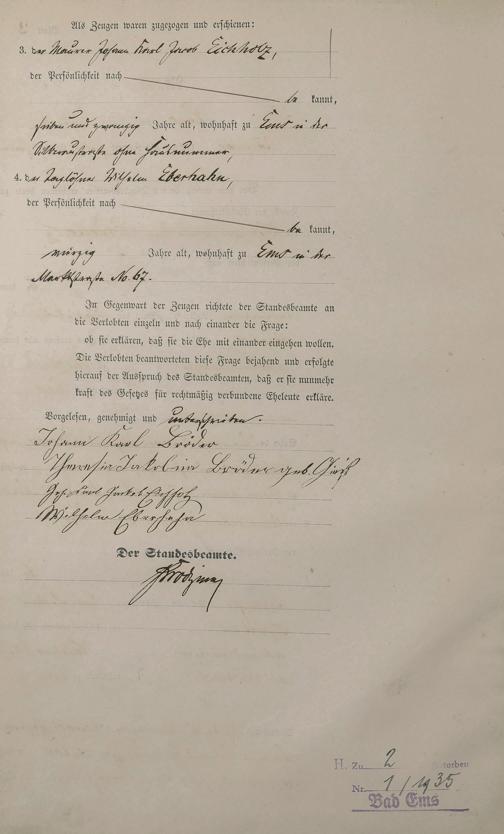 Als Zeugen waren zugezogen und erschienen:
3. der Maurer Johann Karl Jacob Eichholz,
der Persönlichkeit nach
be kannt,
sieben und zwanzig Jahre alt, wohnhaft zu Ems in der
Silberaustraße ohne Hausnummer,
4. der Taglöhner Wilhelm Eberhahn,
der Persönlichkeit nach
be kannt,
Jahre alt, wohnhaft zu Ems in der
Marktstraße No. 67.
In Gegenwart der Zeugen richtete der Standesbeamte an
die Verlobten einzeln und nach einander die Frage:
ob sie erklären, daß sie die Ehe mit einander eingehen wollen.
Die Verlobten beantworteten diese Frage bejahend und erfolgte
hierauf der Ausspruch des Standesbeamten, daß er sie nunmehr
kraft des Gesetzes für rechtmäßig verbundene Eheleute erkläre.
Vorgelesen, genehmigt und unterschrieben.
Johann Karl Bröder
Theresia Jakobine Bröder geb.
Karl Jackob Eichholz
Wilhelm Eberhahn
Der Standesbeamte.
H. Zu 2
Nr. 1/1935
Bad Ems